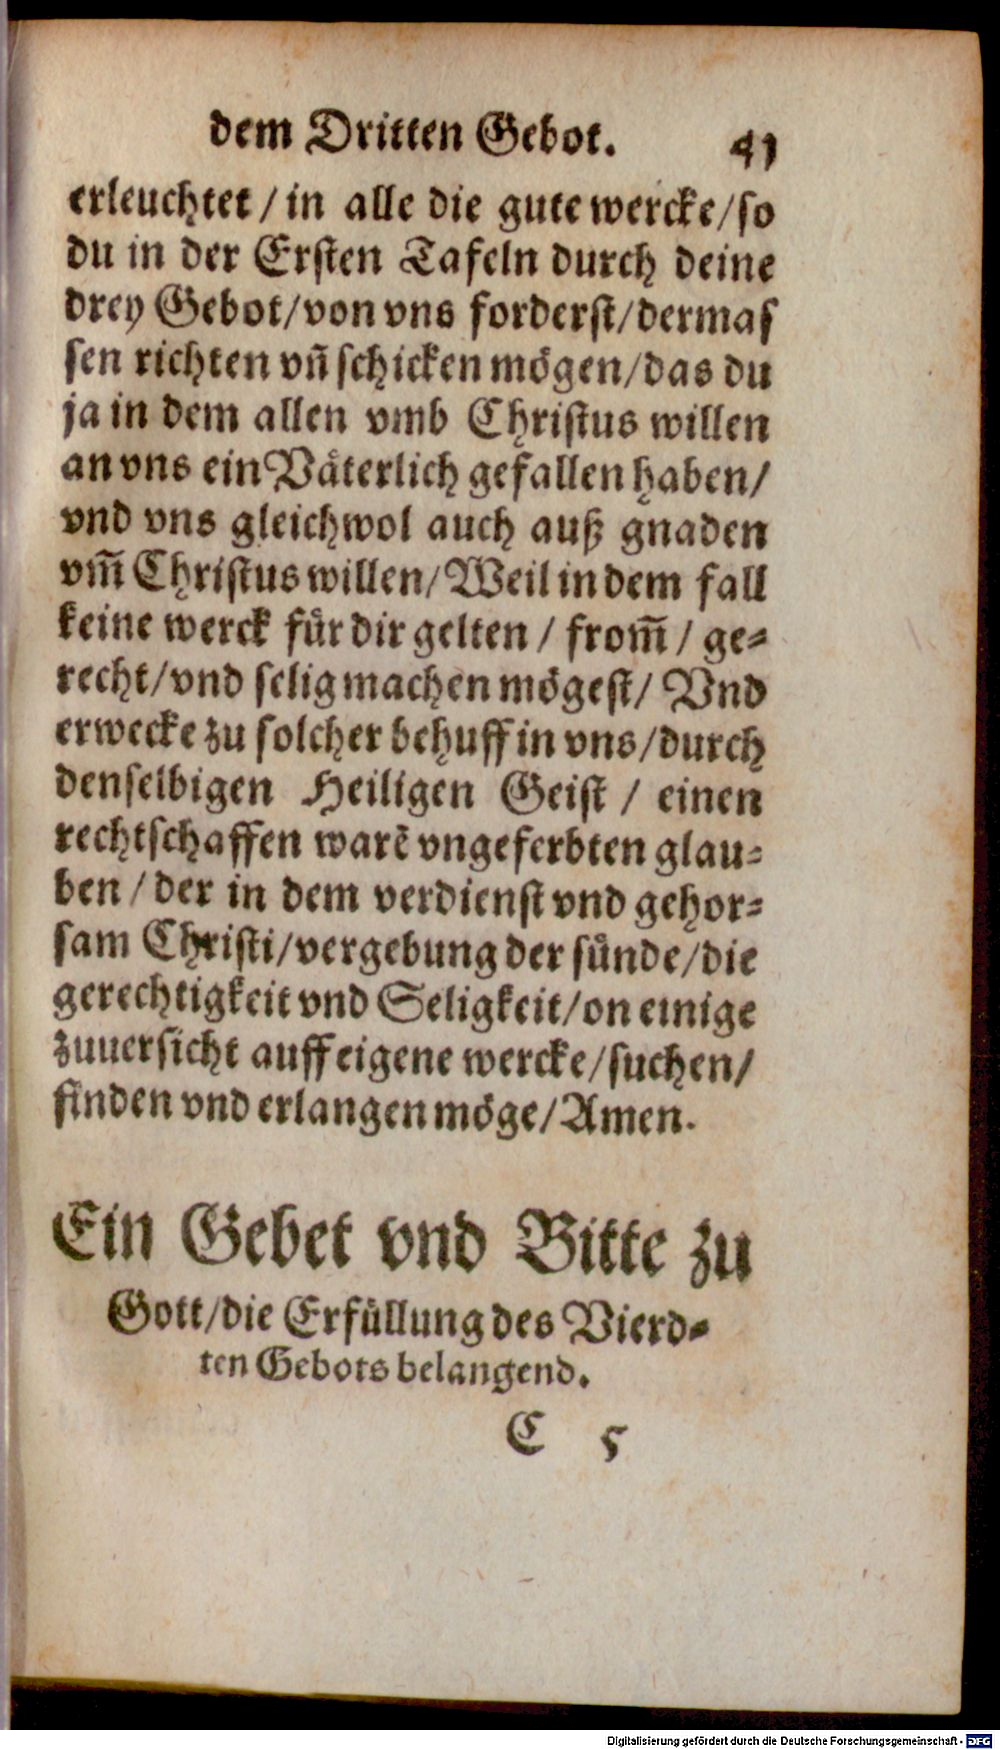 dem Dritten Gebot. 41
erleuchtet / in alle die gute wercke / so
du in der Ersten Tafeln durch deine
drey Gebot / von vns forderst / dermas
sen richten vñ schicken mögen / das du
ja in dem allen vmb Christus willen
an vns ein Väterlich gefallen haben /
vnd vns gleichwol auch auß gnaden
vm̃ Christus willen / Weil in dem fall
keine werck für dir gelten / from̃ / ge-
recht / vnd selig machen mögest / Vnd
erwecke zu solcher behuff in vns / durch
denselbigen Heiligen Geist / einen
rechtschaffen warẽ vngeferbten glau-
ben / der in dem verdienst vnd gehor-
sam Christi / vergebung der sünde / die
gerechtigkeit vnd Seligkeit / on einige
zuuersicht auff eigene wercke / suchen /
finden vnd erlangen möge / Amen.
Ein Gebet vnd Bitte zu
Gott / die Erfüllung des Vierd-
ten Gebots belangend.
C 5
Digitalisierung gefördert durch die Deutsche Forschungsgemeinschaft - DFG